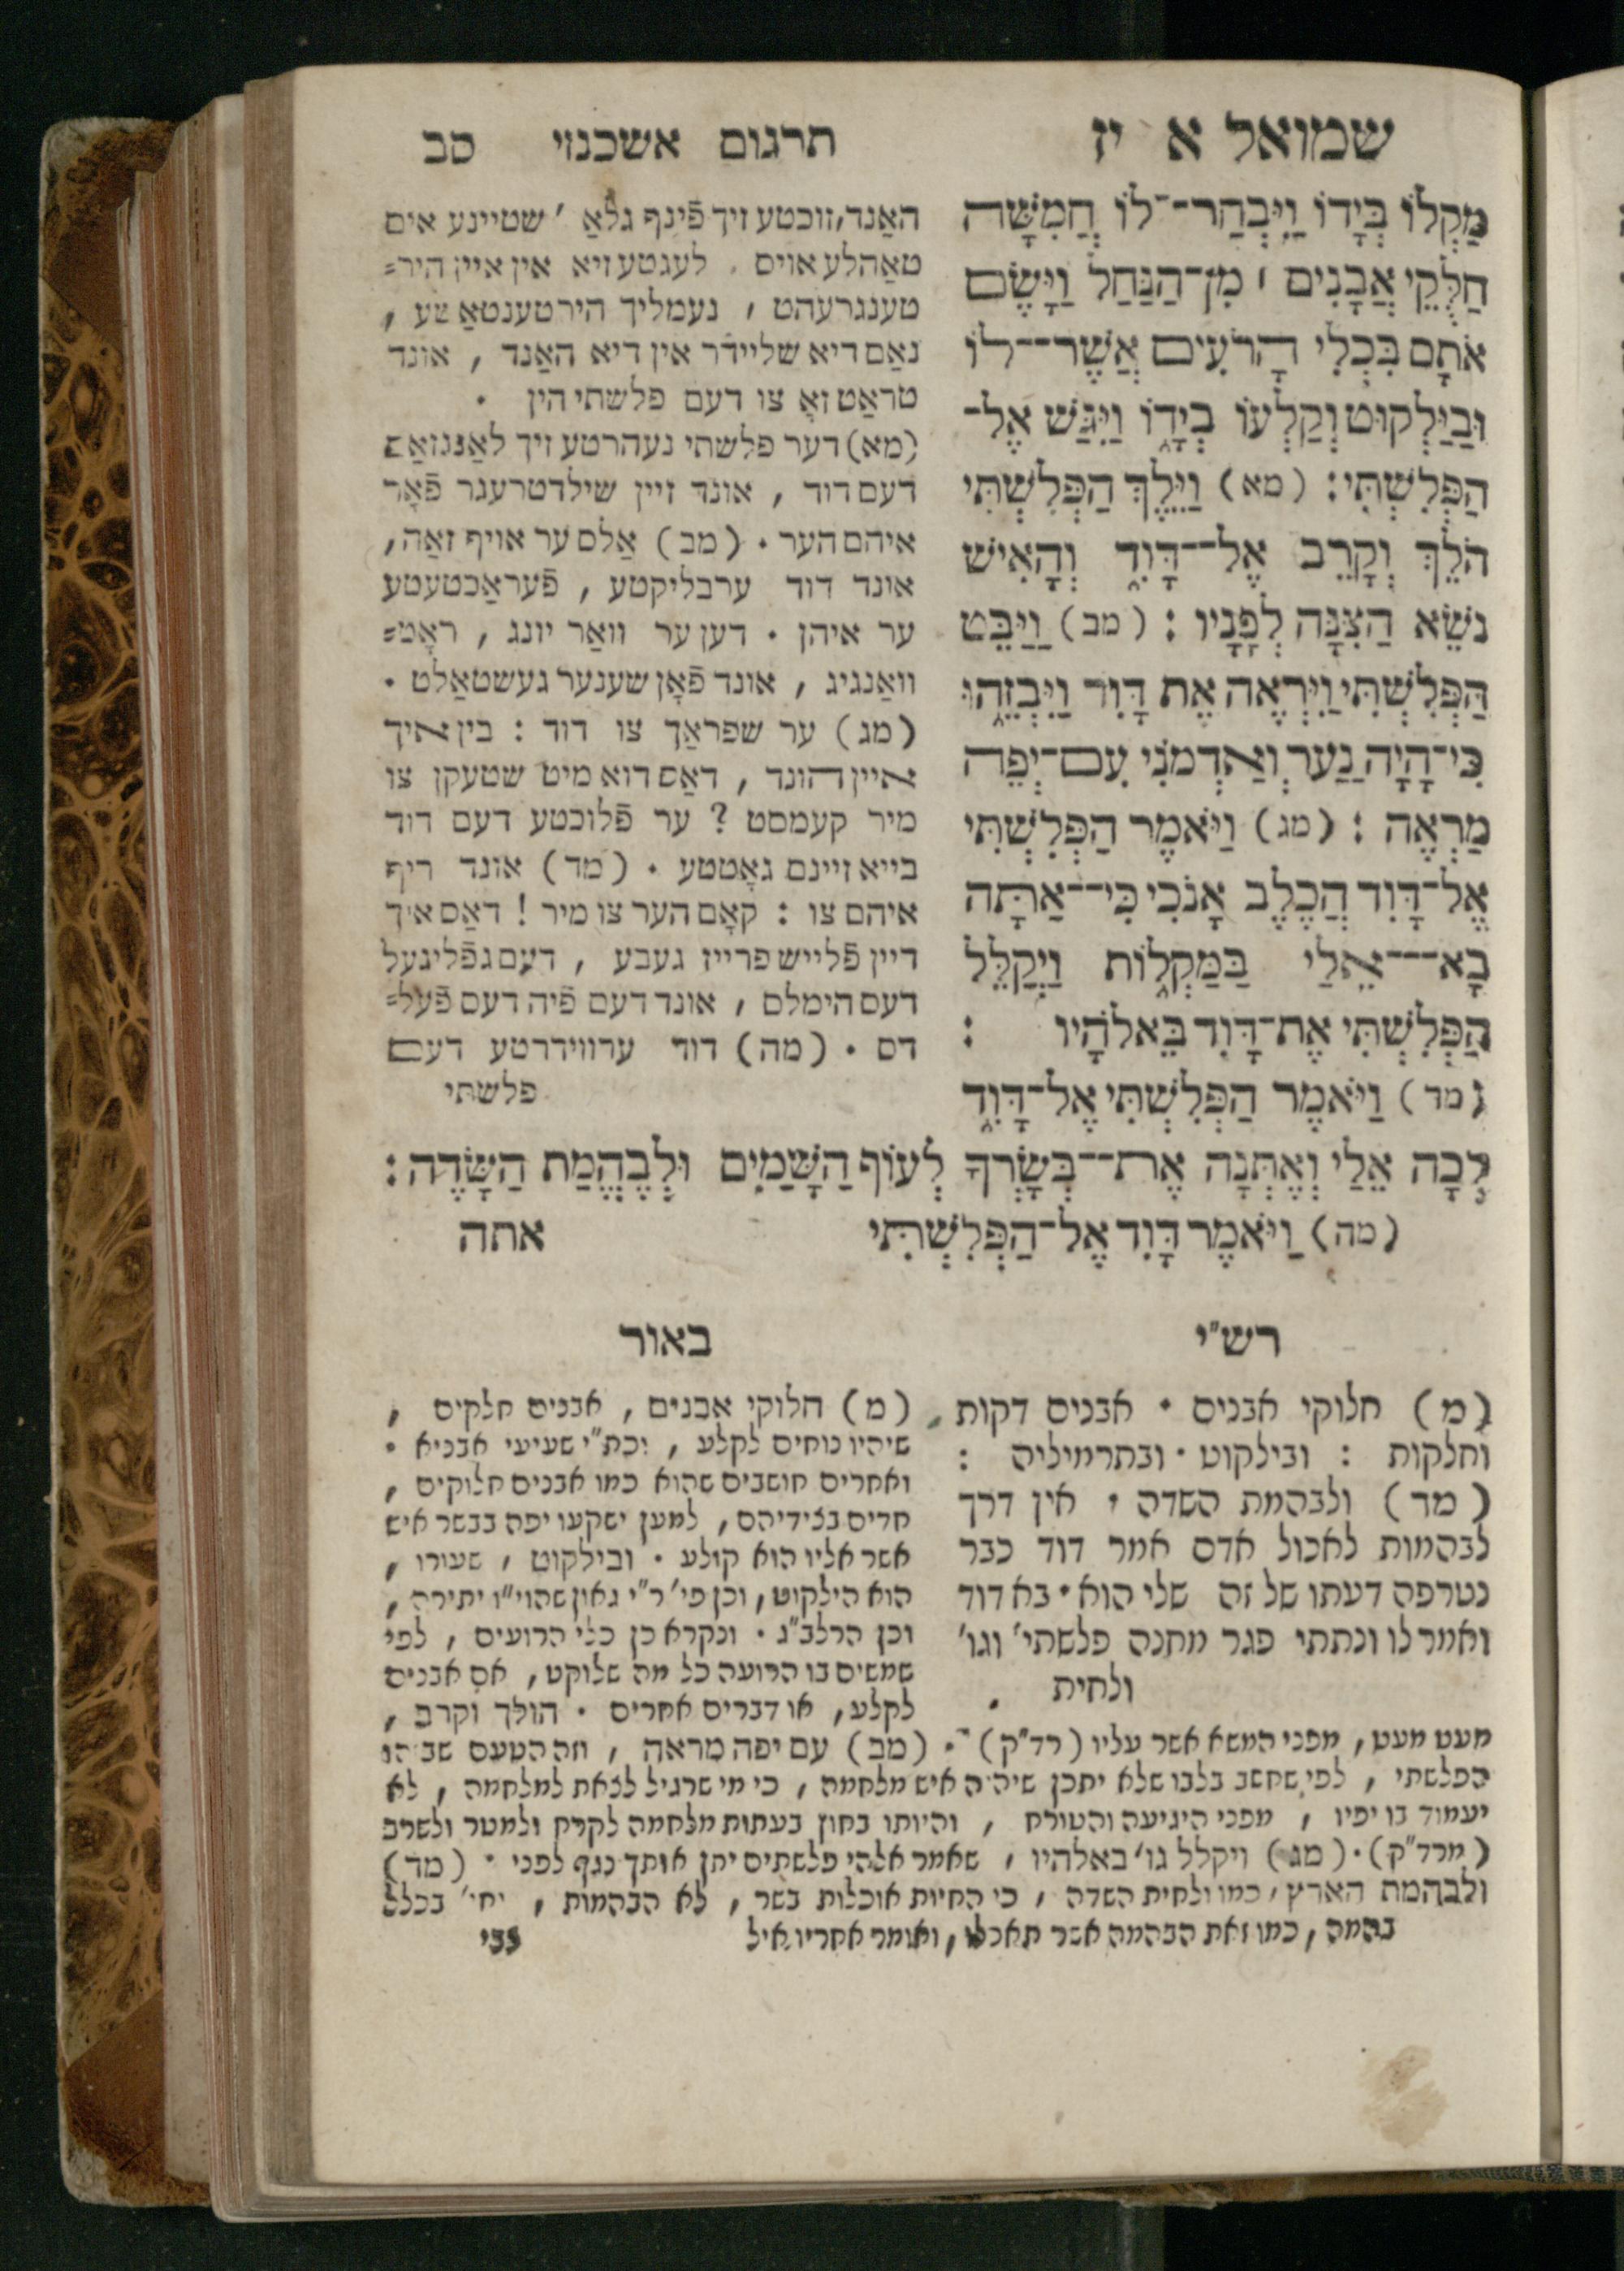 שמואל א יז
תרגום אשכנזי סב
מַקְלוֹ בְּיָדוֹ וַיִּבְחַר־־לוֹ חֲמִשָּׁה
חַלֻּקֵי אֲבָנִים ׀ מִן־הַנַּחַל וַיָּשֶׂם
אֹתָם בִּכְלִי הָרֹעִים אֲשֶׁר־־לוֹ
וּבַיַּלְקוּט וְקַלְעוֹ בְיָדוֹ וַיִּגַּשׁ אֶל־
הַפְּלִשְׁתִּי: (מא) וַיֵּלֶךְ הַפְּלִשְׁתִּי
הֹלֵךְ וְקָרֵב אֶל־־דָּוִד וְהָאִישׁ
נֹשֵׂא הַצִּנָּה לְפָנָיו : (מב) וַיַּבֵּט
הַפְּלִשְׁתִּי וַיִּרְאֶה אֶת דָּוִד וַיִּבְזֵהוּ
כִּי־הָיָה נַעַר וְאַדְמֹנִי עִם־יְפֵה
מַרְאֶה : (מג) וַיֹּאמֶר הַפְּלִשְׁתִּי
אֶל־דָּוִד הֲכֶלֶב אָנֹכִי כִּי־־אַתָּה
בָא־־־אֵלַי בַּמַּקְלוֹת וַיְקַלֵּל
הַפְּלִשְׁתִּי אֶת־דָּוִד בֵּאלֹהָיו :
(מד) וַיֹּאמֶר הַפְּלִשְׁתִּי אֶל־דָּוִד
האַנד, זוכטע זיך פֿינף גלאַ' שטיינע אים
טאַהלע אויס . לעגטע זיא אין איין היר=
טענגרעהט , נעמליך הירטענטאַשע ,
נאַם דיא שליידר אין דיא האַנד , אונד
טראַט זאָ צו דעם פלשתי הין .
(מא) דער פלשתי נעהרטע זיך לאַנגזאַם
דעם דוד , אונד זיין שילדטרעגר פֿאָר
איהם הער . (מב) אַלס ער אויף זאַה,
אונד דוד ערבליקטע , פֿעראַכטעטע
ער איהן . דען ער וואַר יונג , ראָט=
וואַנגיג , אונד פֿאָן שענער געשטאַלט .
(מג) ער שפראַך צו דוד : בין איך
איין הונד , דאַס דוא מיט שטעקן צו
מיר קעמסט ? ער פֿלוכטע דעם דוד
בייא זיינם גאָטטע . (מד) אונד ריף
איהם צו : קאָם הער צו מיר ! דאַס איך
דיין פֿלייש פרייז געבע , דעם גפֿליגעל
דעם הימלם , אונד דעם פֿיה דעם פֿעל=
דם . (מה) דוד ערווידרטע דעם
פלשתי
לְכָה אֵלַי וְאֶתְּנָה אֶת־־בְּשָׂרְךָ לְעוֹף הַשָּׁמַיִם וּלְבֶהֱמַת הַשָּׂדֶה:
(מה) וַיֹּאמֶר דָּוִד אֶל־הַפְּלִשְׁתִּי אתה
רש"י
(מ) חלוקי אבנים . אבנים דקות
וחלקות : ובילקוט . ובתרמיליה :
(מד) ולבהמת השדה . אין דרך
לבהמות לאכול אדם אמר דוד כבר
נטרפה דעתו של זה שלי הוא . בא דוד
ואמר לו ונתתי פגר מחנה פלשתי' וגו'
ולחית
באור
(מ) חלוקי אבנים , אבנים חלקים ,
שיהיו נוחים לקלע , וכת"י שעיעי אבניא .
ואחרים חושבים שהוא כמו אבנים חלוקים ,
חדים בצידיהם , למען ישקעו יפה בבשר איש
אשר אליו הוא קולע . ובילקוט , שעורו ,
הוא הילקוט, וכן פי' ר"י גאון שהוי"ו יתירה ,
וכן הרלב"ג . ונקרא כן כלי הרועים , לפי
שמשים בו הרועה כל מה שלוקט, אם אבנים
לקלע, או דברים אחרים . הולך וקרב ,
מעט מעט, מפני המשא אשר עליו (רד"ק) . (מב) עם יפה מראה , וזה הטעם שבזהו
הפלשתי , לפי שחשב בלבו שלא יתכן שיהיה איש מלחמה , כי מי שרגיל לצאת למלחמה , לא
יעמוד בו יפיו , מפני היגיעה והטורח , והיותו בחוץ בעתות מלחמה לקרח ולמטר ולשרב
(מרד"ק) . (מג) ויקלל גו' באלהיו , שאמר אלהי פלשתים יתן אותך נגף לפני . (מד)
ולבהמת הארץ, כמו ולחית השדה , כי החיות אוכלות בשר , לא הבהמות , יחי' בכלל
בהמה , כמו זאת הבהמה אשר תאכלו, ואומר אחריו איל צבי